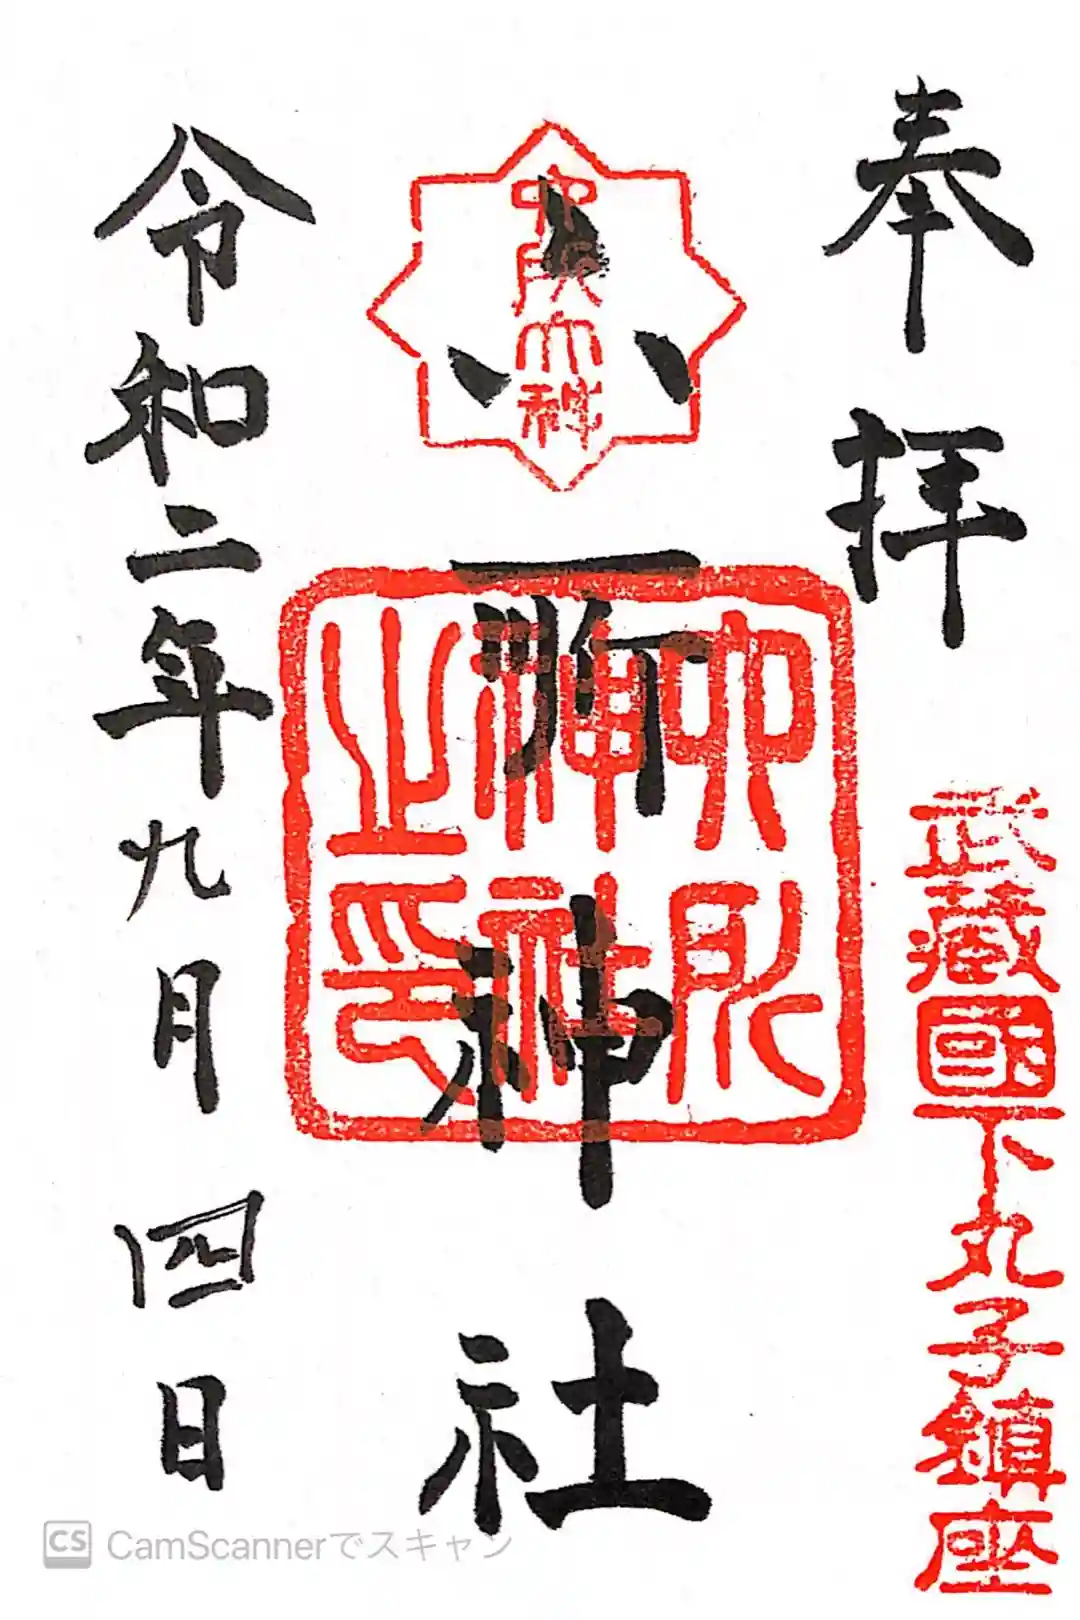 奉拝
武蔵國下丸子鎮座
六所神社
六所神社之印
令和二年九月四日
CS CamScannerでスキャン